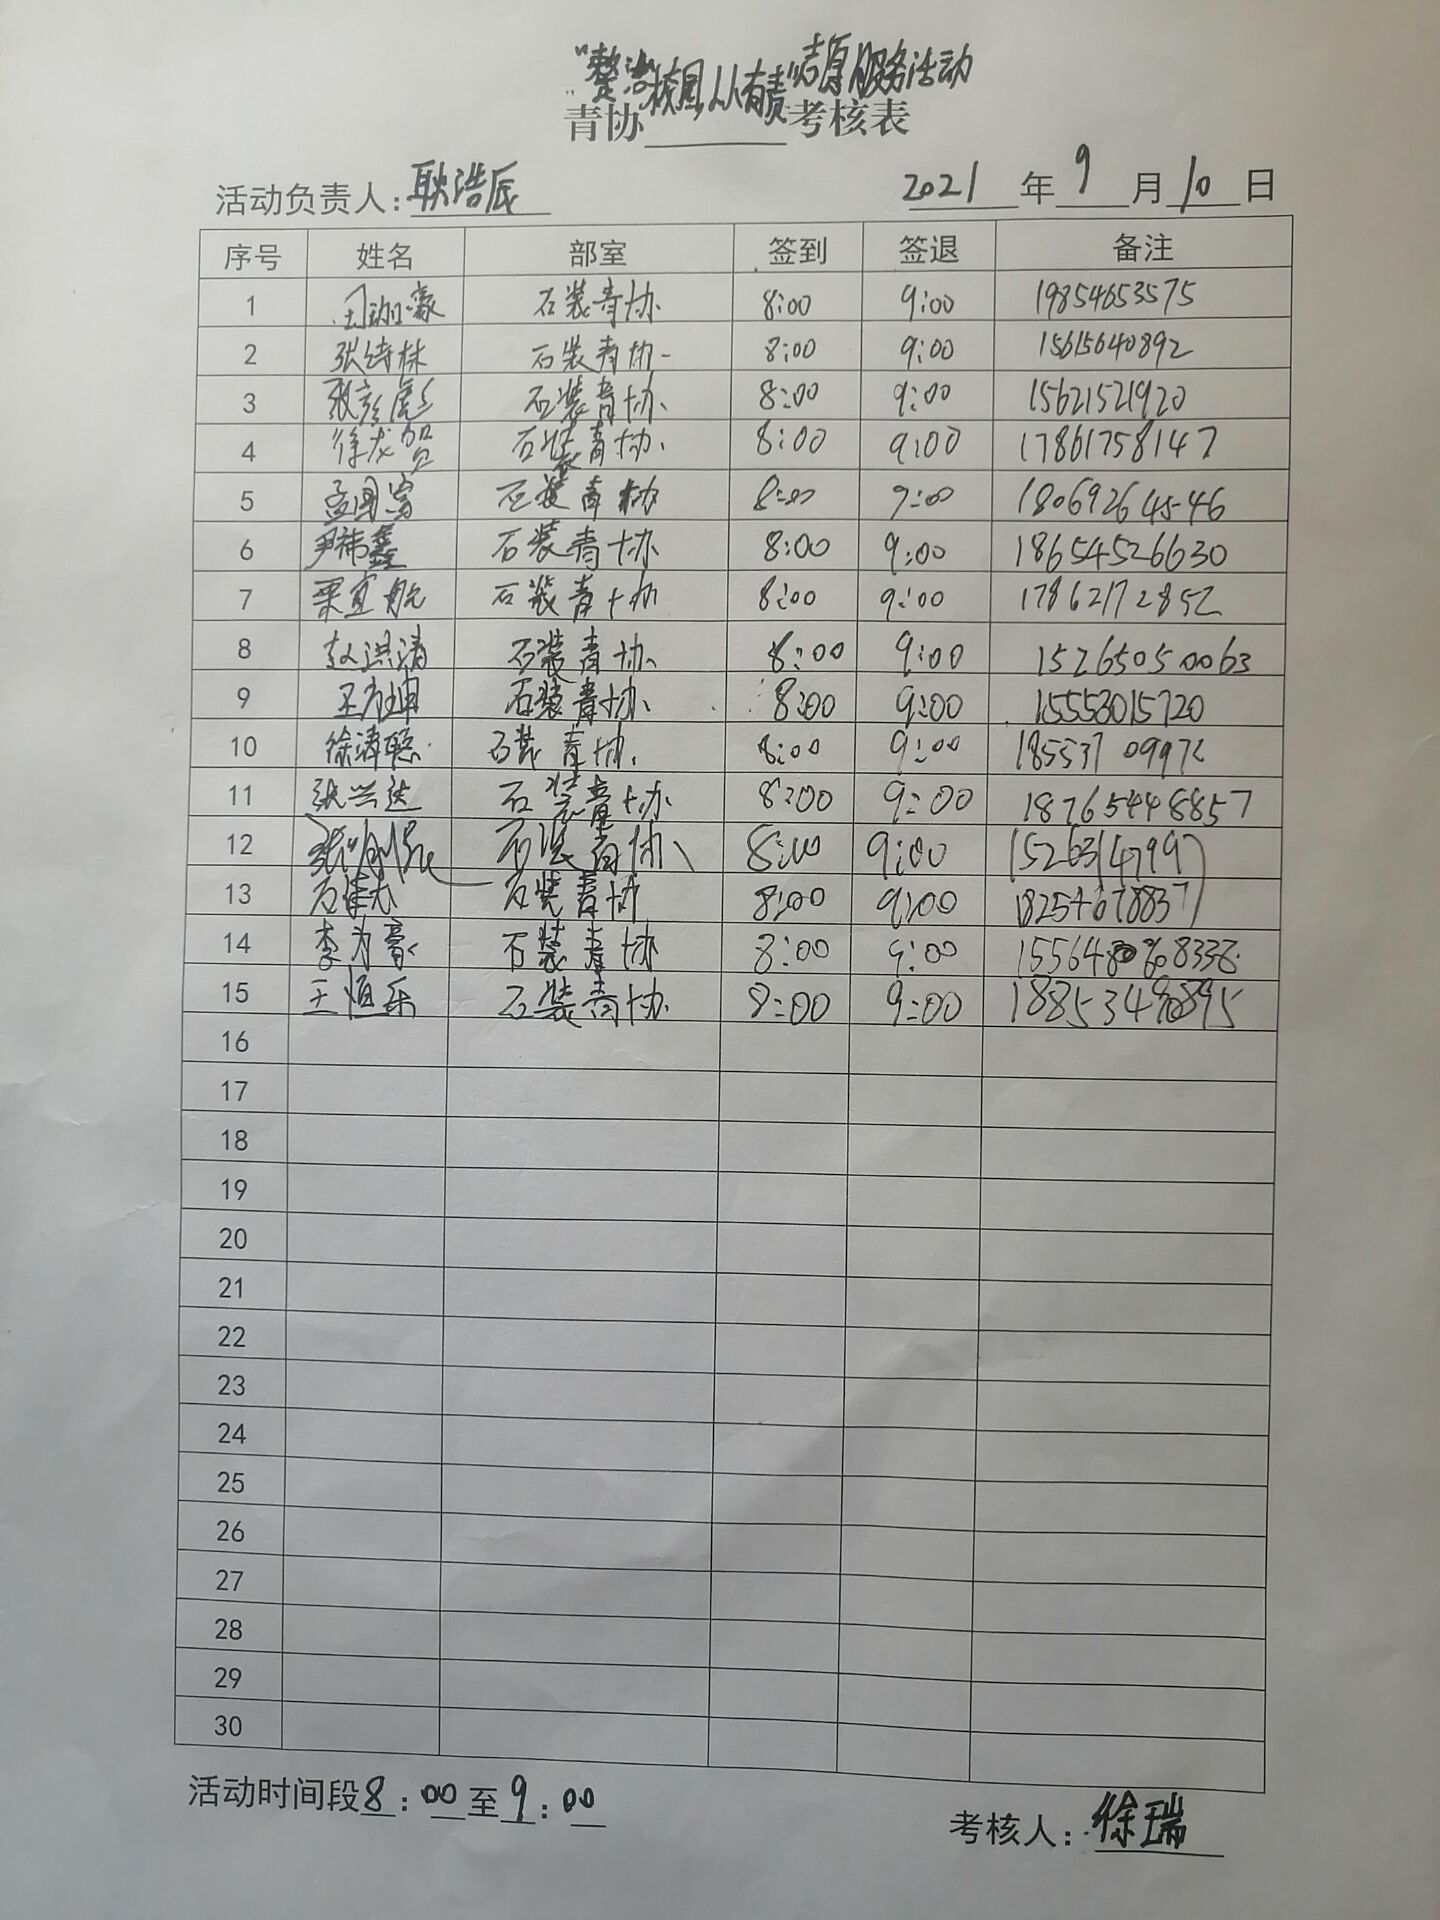 "整治校园人人有责"志愿服务活动
青协 考核表
活动负责人：耿浩辰 2021年9月10日
序号 姓名 部室 签到 签退 备注
1 石装青协 8:00 9:00 19854653575
2 张诗林 石装青协 8:00 9:00 15615640892
3 张彦彪 石装青协 8:00 9:00 15621521920
4 徐龙贺 石装青协 8:00 9:00 17861758147
5 孟国富 石装青协 8:00 9:00 18069264546
6 尹祎鑫 石装青协 8:00 9:00 18654526630
7 栗宜航 石装青协 8:00 9:00 17862172852
8 赵洪涛 石装青协 8:00 9:00 15265050063
9 石装青协 8:00 9:00 15553015720
10 徐涛聪 石装青协 8:00 9:00 18553709972
11 张兴达 石装青协 8:00 9:00 18765448857
12 石装青协 8:00 9:00 15263147997
13 石装青协 8:00 9:00 18254678837
14 李为豪 石装青协 8:00 9:00
15 王恒乐 石装青协 8:00 9:00
16
17
18
19
20
21
22
23
24
25
26
27
28
29
30
活动时间段8:00至9:00
考核人：徐瑞